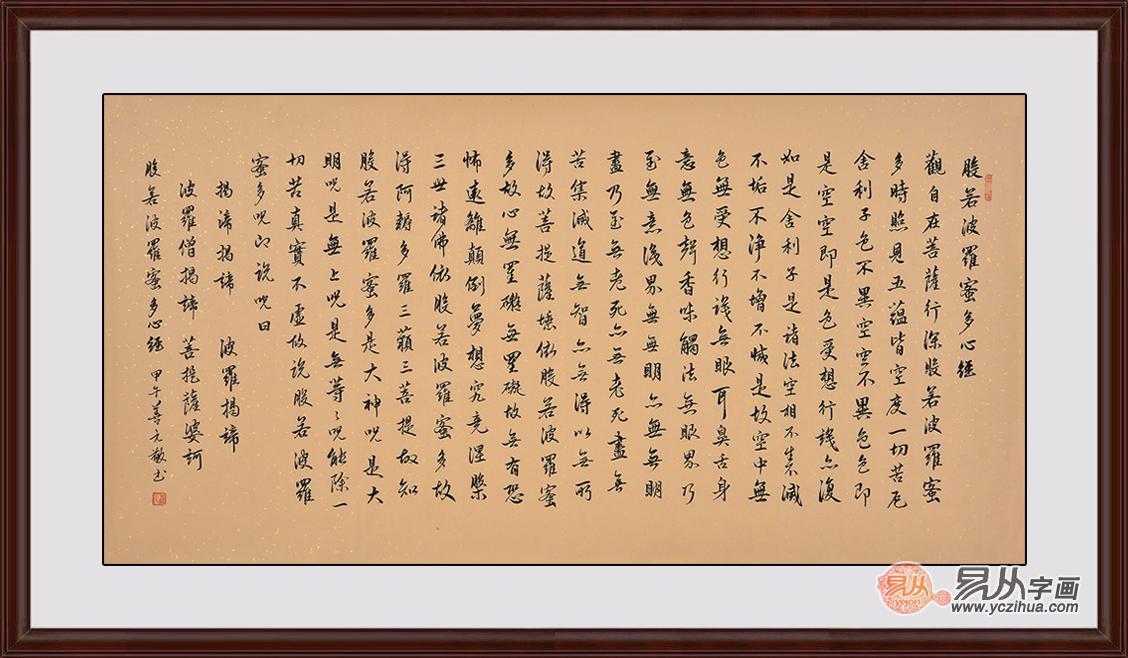 般若波羅蜜多心經
觀自在菩薩行深般若波羅蜜
多時照見五蘊皆空度一切苦厄
舍利子色不異空空不異色色即
是空空即是色受想行識亦復
如是舍利子是諸法空相不生不滅
不垢不淨不增不減是故空中無
色無受想行識無眼耳鼻舌身
意無色聲香味觸法無眼界乃
至無意識界無無明亦無無明
盡乃至無老死亦無老死盡無
苦集滅道無智亦無得以無所
得故菩提薩埵依般若波羅蜜
多故心無罣礙無罣礙故無有恐
怖遠離顛倒夢想究竟涅槃
三世諸佛依般若波羅蜜多故
得阿耨多羅三藐三菩提故知
般若波羅蜜多是大神呪是大
明呪是無上呪是無等々呪能除一
切苦真實不虛故說般若波羅
蜜多呪即說呪曰
揭諦揭諦 波羅揭諦
波羅僧揭諦 菩提薩婆訶
般若波羅蜜多心經 甲午善元敬書
易从
yicong
易从字画
www.yczihua.com